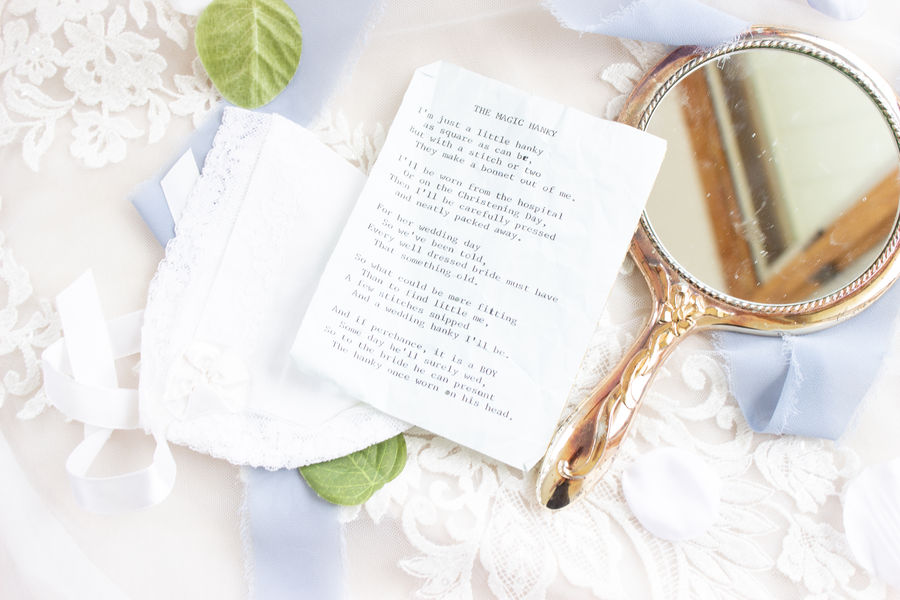 THE MAGIC HANKY
I'm just a little hanky
as square as can be,
But with a stitch or two
They make a bonnet out of me.
I'll be worn from the hospital
Or on the Christening Day,
Then I'll be carefully pressed
and neatly packed away.
For her wedding day
So we've been told,
Every well dressed bride must have
That something old.
So what could be more fitting
Than to find little me,
A few stitches snipped
And a wedding hanky I'll be.
And if perchance, it is a BOY
Some day he'll surely wed,
So to the bride he can present
The hanky once worn on his head.